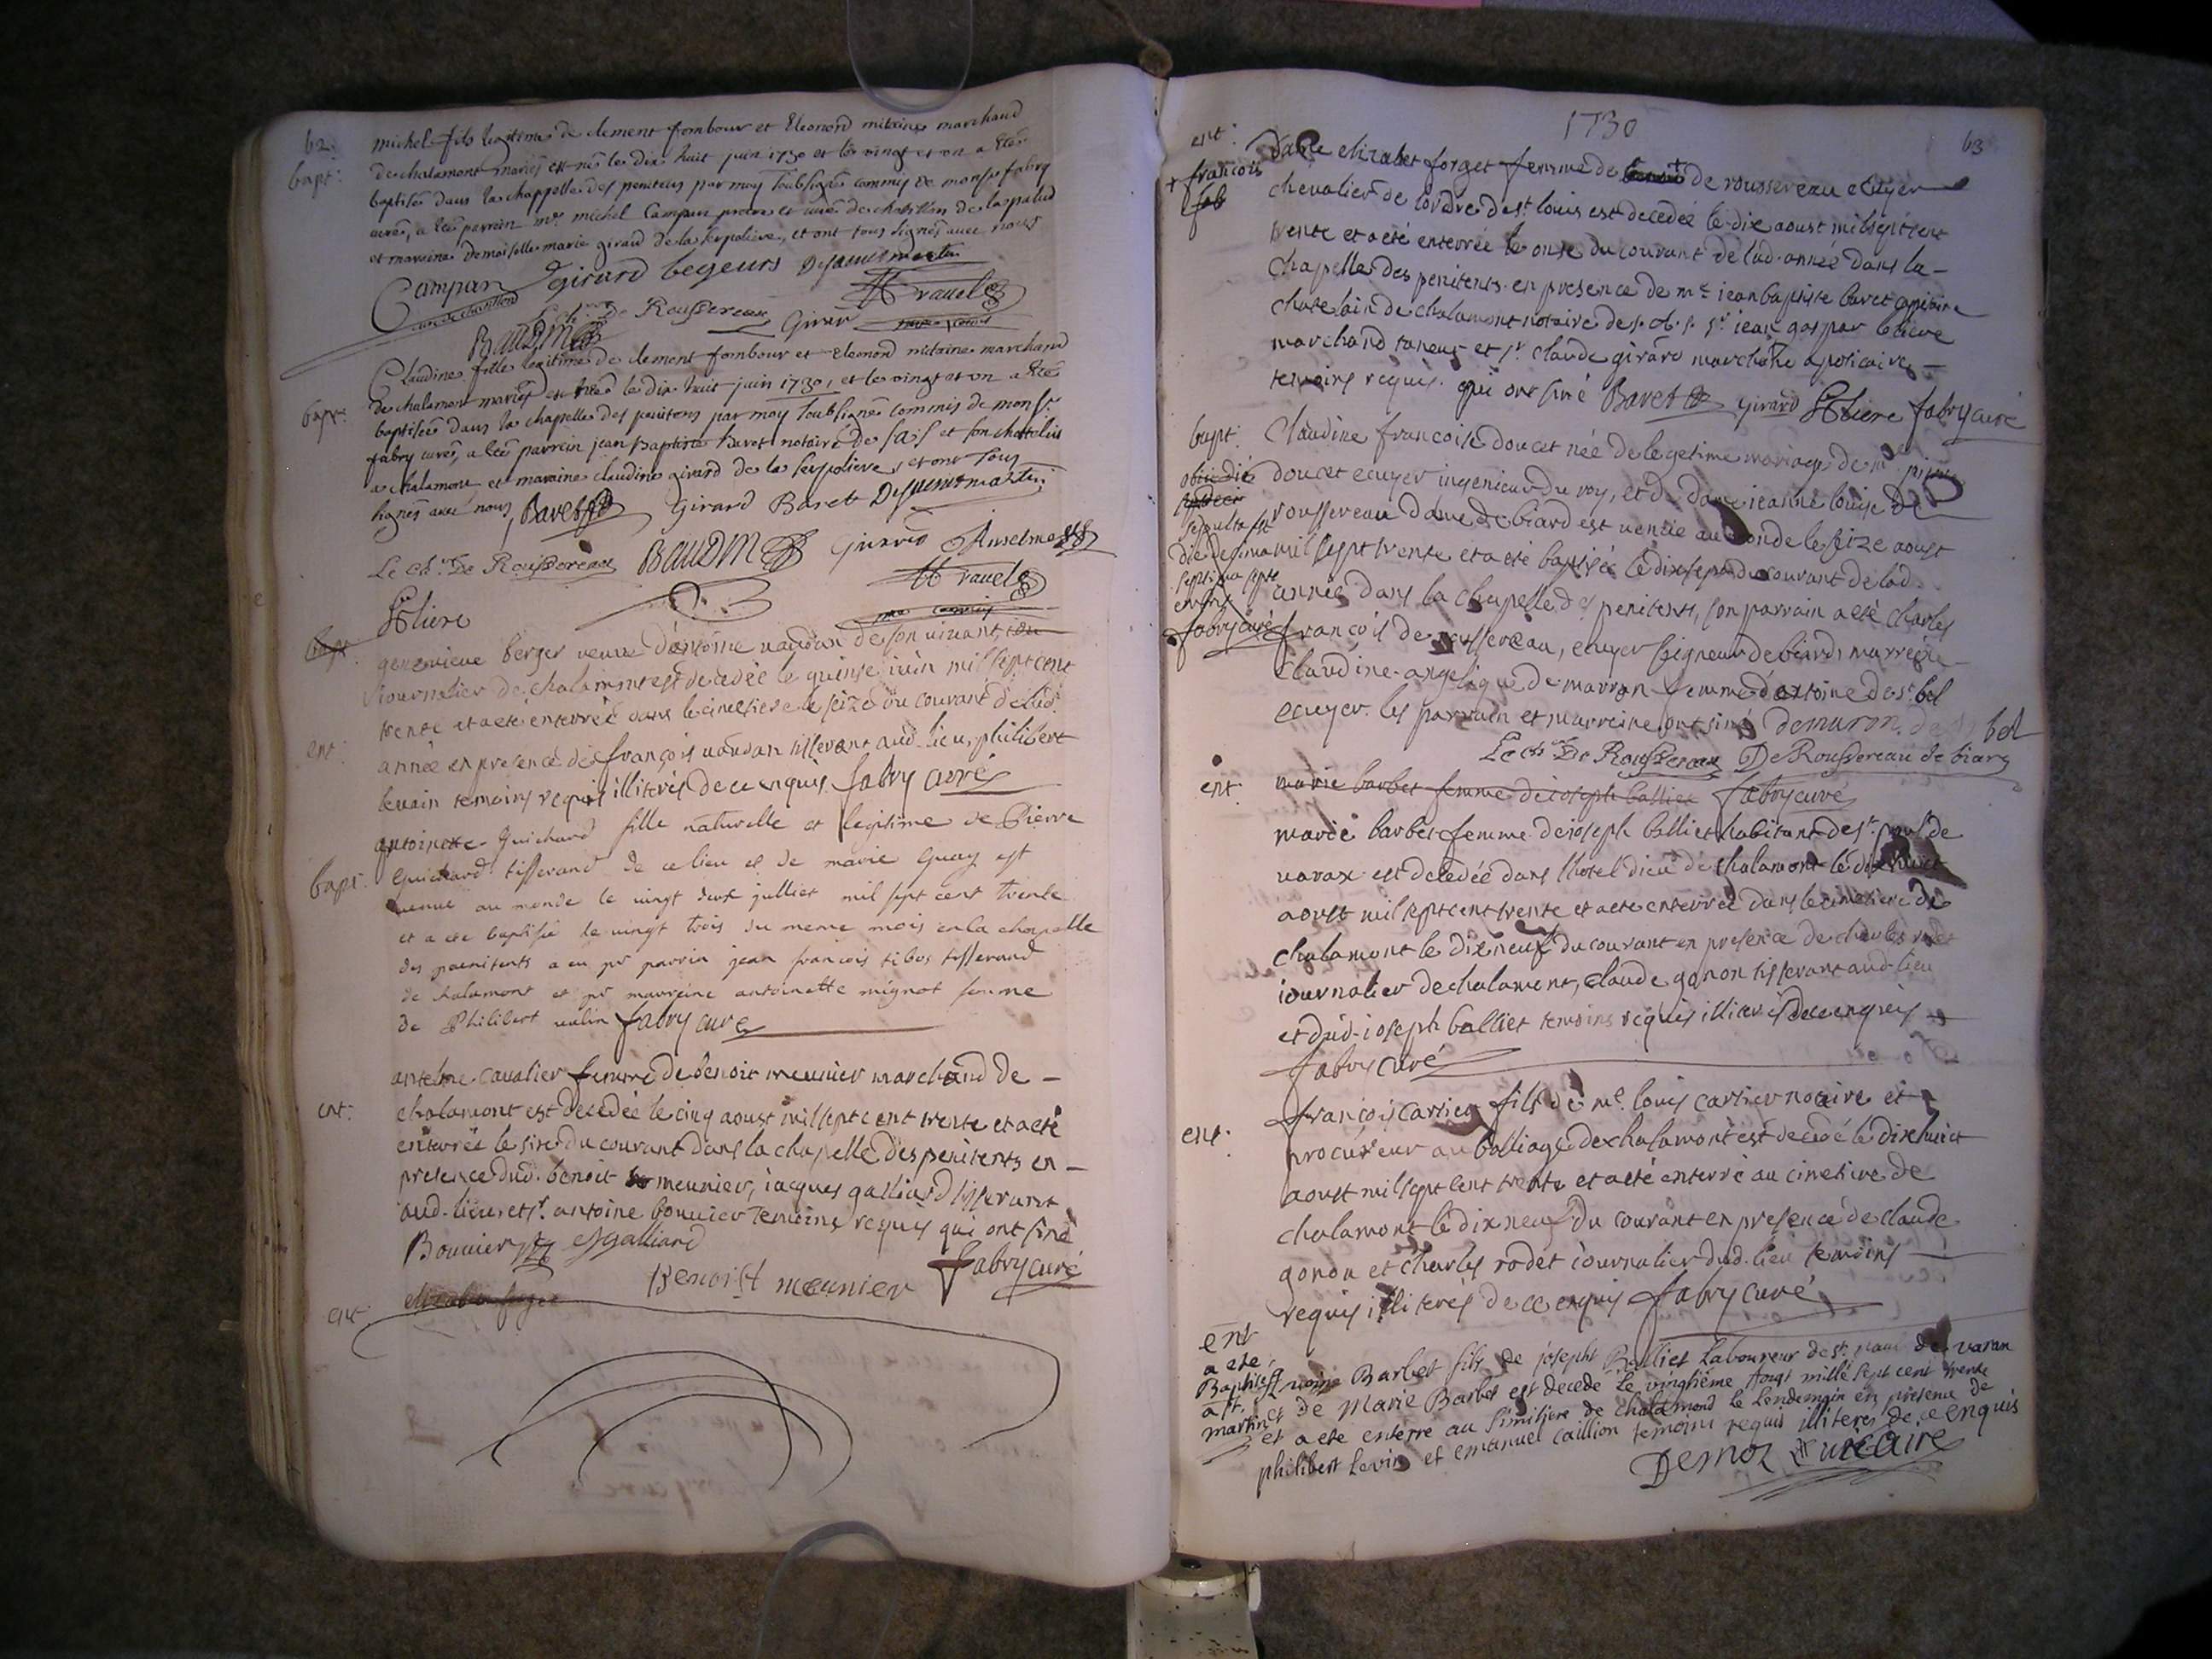 62.
bapt:
michel fils legitime de clement fombour et Eleonord mitaine marchand
de chalamont mariés est né le dix huit juin 1730 et le vingt et un a Eté
baptisée dans la chappelle des penitens par moy soubsigné commis de monsr fabry
curé, a été parrein mr michel Campan pretre et curé de chatillon de la palud
et marraine demoiselle marie girard de la serpoliere, et ont tous signés avec nous
Campan Girard
curé de chatillon
De Roussereau Girard
Baudin
bapt:
Claudine fille legitime de clement fombour et Eleonord mitaine marchand
de chalamont mariés est née le dix huit juin 1730, et le vingt et un a Eté
baptisée dans la chapelle des penitens par moy soubsigné commis de monsr
fabry curé, a été parrein jean baptiste Baret notaire et son chattelin
a chalamont et maraine claudine girard de la serpoliere, et ont tous
signés avec nous, Baret Girard Baret
Le chr De Roussereau Baudin Girard Anselme
Lliere
bapt
genevieve berger veuve d'antoine naudan de son vivant
journalier de chalamont est decedée le quinse juin mil sept cent
ent:
trente et a eté enterrée dans le cimetiere le seize du courant de lad.
année en presence de françois naudan tisserant aud. lieu, philibert
levain temoins requis illiterés de ce enquis fabry curé
bapt:
antoinette Guichard fille naturelle et legitime de Pierre
Guichard tisserand de ce lieu et de marie Guay est
venue au monde le vingt deux julliet mil sept cent trente
et a ete baptisée le vingt trois du meme mois en la chapelle
des paenitents a eu pr parrin jean françois tibos tisserand
de chalamont et pr marreine antoinette mignot femme
de Philibert fabry curé
ent:
anteme cavalier femme de benoit meunier marchand de
chalamont est decedée le cinq aoust mil sept cent trente et a eté
enterrée le sixe du courant dans la chapelle des penitents en
presence dud. benoit meunier, jacques galliard tisserant
aud. lieu, et sr. antoine bouvier temoins requis qui ont siné
Bouvier galliard
Benoist meunier fabry curé
ent:
1730
63
ent:
+ francois
fab
Dame elizabet forget femme de + de roussereau ecuyer
chevalier de l'ordre de st louis est decedée le dix aoust mil sept cent
trente et a eté enterrée le onse du courant de lad. année dans la
chapelle des penitents en presence de me jean baptiste baret capitaine
chatelain de chalamont notaire sr jean gaspar
marchand taneur et sr claude girard marchand apoticaire
temoins requis qui ont siné Baret Girard Lliere fabry curé
bapt:
Claudine francoise doucet née de legetime mariage de mr
doucet ecuyer ingenieur du roy, et de dame jeanne louise de
roussereau dame de biard est venue au monde le seize aoust
mil sept trente et a eté baptisée le dix sept du courant de lad.
année dans la chapelle des penitents, son parrain a eté charles
françois de roussereau, ecuyer seigneur de biard, marreine
Claudine angelique de marron femme d'antoine de st bel
ecuyer. les parrain et marreine ont siné demaron de st bel
obiit die
sepulta est
die decima
septima septembris
fabry curé
Le chr De Roussereau De Roussereau de biard
ent:
marie barbet femme de joseph balliet fabry curé
marie barbet femme de joseph balliet habitant de st. paul de
varax est decedée dans l'hotel dieu de chalamont le dix huict
aoust mil sept cent trente et a eté enterrée dans le cimetiere de
chalamont le dix neuf du courant en presence de charles rodet
journalier de chalamont, claude gonon tisserant aud. lieu
et dud. joseph balliet temoins requis illiterés de ce enquis
fabry curé
ent:
françois cartier fils de me. louis cartier notaire et
procureur au balliage de chalamont est decedé le dix huict
aoust mil sept cent trente et a eté enterré au cimetire de
chalamont le dix neuf du courant en presence de claude
gonon et charles rodet journalier dud. lieu temoins
requis illiterés de ce enquis fabry curé
ent
a ete
Baptise
a st.
martin
Barbet fils de joseph Balliet laboureur de st. paul de varan
et de Marie Barbet est decede le vingtiéme Aougt mille sept cent trente
et a ete enterre au similiere de chalamond le lendemain en presence de
philibert Levin et emanuel caillion temoins requis illiteres de ce enquis
Demoz vicaire